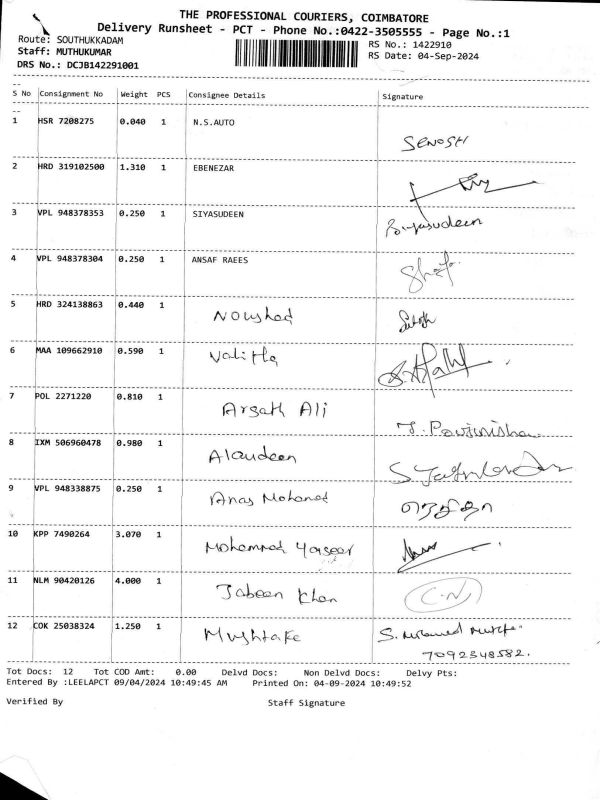 THE PROFESSIONAL COURIERS, COIMBATORE
Delivery Runsheet - PCT - Phone No.:0422-3505555 - Page No.:1
Route: SOUTHUKKADAM
RS No.: 1422910
Staff: MUTHUKUMAR
RS Date: 04-Sep-2024
DRS No.: DCJB142291001
S No Consignment No Weight PCS Consignee Details Signature
1 HSR 7208275 0.040 1 N.S.AUTO SENOSH
2 HRD 319102500 1.310 1 EBENEZAR
3 VPL 948378353 0.250 1 SIYASUDEEN
4 VPL 948378304 0.250 1 ANSAF RAEES
5 HRD 324138863 0.440 1 Noushad
6 MAA 109662910 0.590 1
7 POL 2271220 0.810 1 Arsath Ali
8 IXM 506960478 0.980 1 Alaudeen
9 VPL 948338875 0.250 1 Anas Mohamed
10 KPP 7490264 3.070 1 Mohammed Yaseer
11 NLM 90420126 4.000 1 Jabeen Khan C.N
12 COK 25038324 1.250 1 Mushtake
7092348582.
Tot Docs: 12 Tot COD Amt: 0.00 Delvd Docs: Non Delvd Docs: Delvy Pts:
Entered By :LEELAPCT 09/04/2024 10:49:45 AM Printed On: 04-09-2024 10:49:52
Verified By Staff Signature